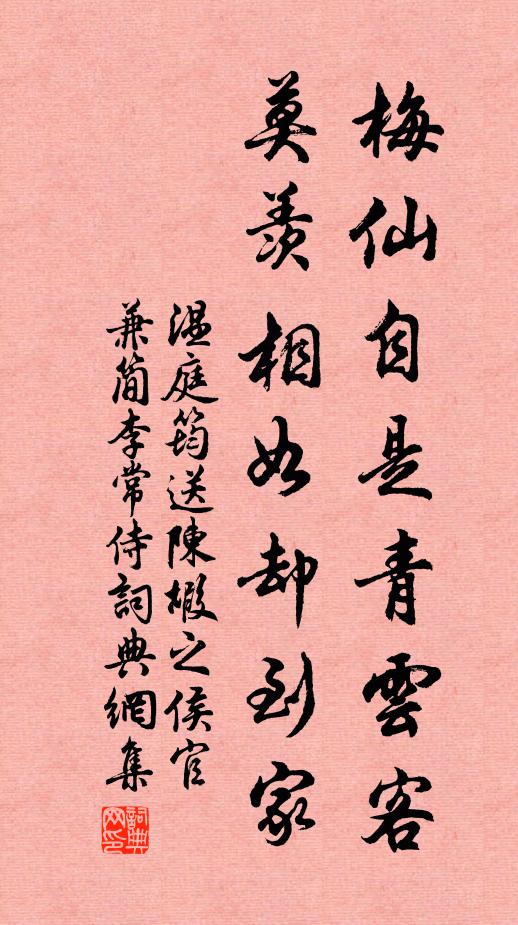 梅仙自是青雲客
莫羨相如却到家
温庭筠送陳嘏之侯官
兼簡李常侍詞典網集
詞典
网印